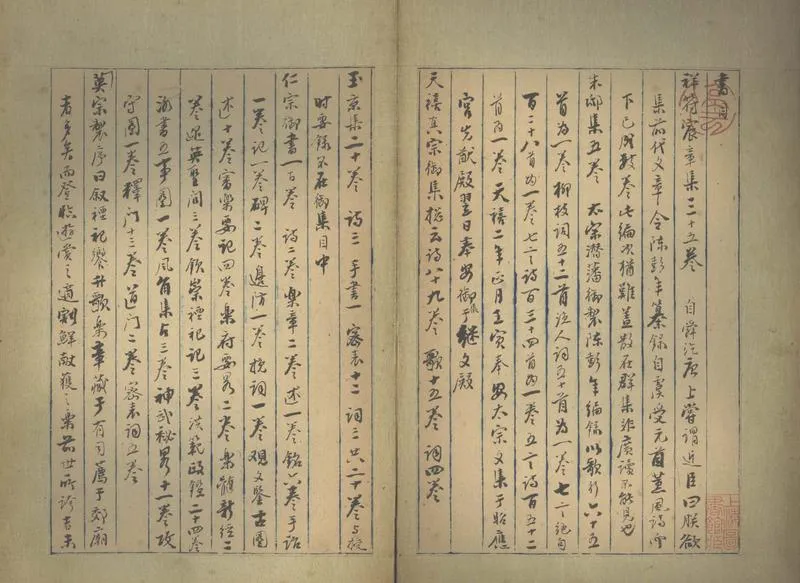 書目
祥符宸章集二十五卷 自舜迄唐上嘗謂近臣曰朕欲
集前代文章令陳彭年纂錄自虞受元首薰風詩而
下已成數卷此編次猶難蓋散在群集非廣讀不能見也
朱邸集五卷 太宗潛藩御製陳彭年編錄以歌行六十五
首為一卷柳枝詞五十二首 人詞五十首為一卷七言絕句
百二十八首为一卷七言詩百三十四首为一卷五言詩百五十二
首为一卷天禧二年正月壬寅奉安太宗文集于昭應
宮先献殿翌日奉安御集于継文殿
天禧真宗御集 云詩八十九卷歌十五卷詞四卷
玉京集二十卷 詩三手書一密表十二詞三共二十卷与
時要錄不在御集目中
仁宗御書一百卷 詩二卷樂章二卷述一卷銘六卷手詔
一卷記一卷碑二卷邊防一卷挽詞一卷觀文鑒古圖
述十卷審樂要記四卷樂府要畧二卷樂髓新經二
卷邇英聖間三卷欽崇禋祀記三卷洪範政鑒二十四卷
洛書五事圖一卷風角集占三卷神武秘畧十一卷攻
守圖一卷釋門十三卷道門二卷密表詞五卷
英宗製序曰叙禋祀饗升歌樂章藏于有司薦于郊廟
者多矣而登臨遊賞之適割鮮献獲之樂前世所誇者未